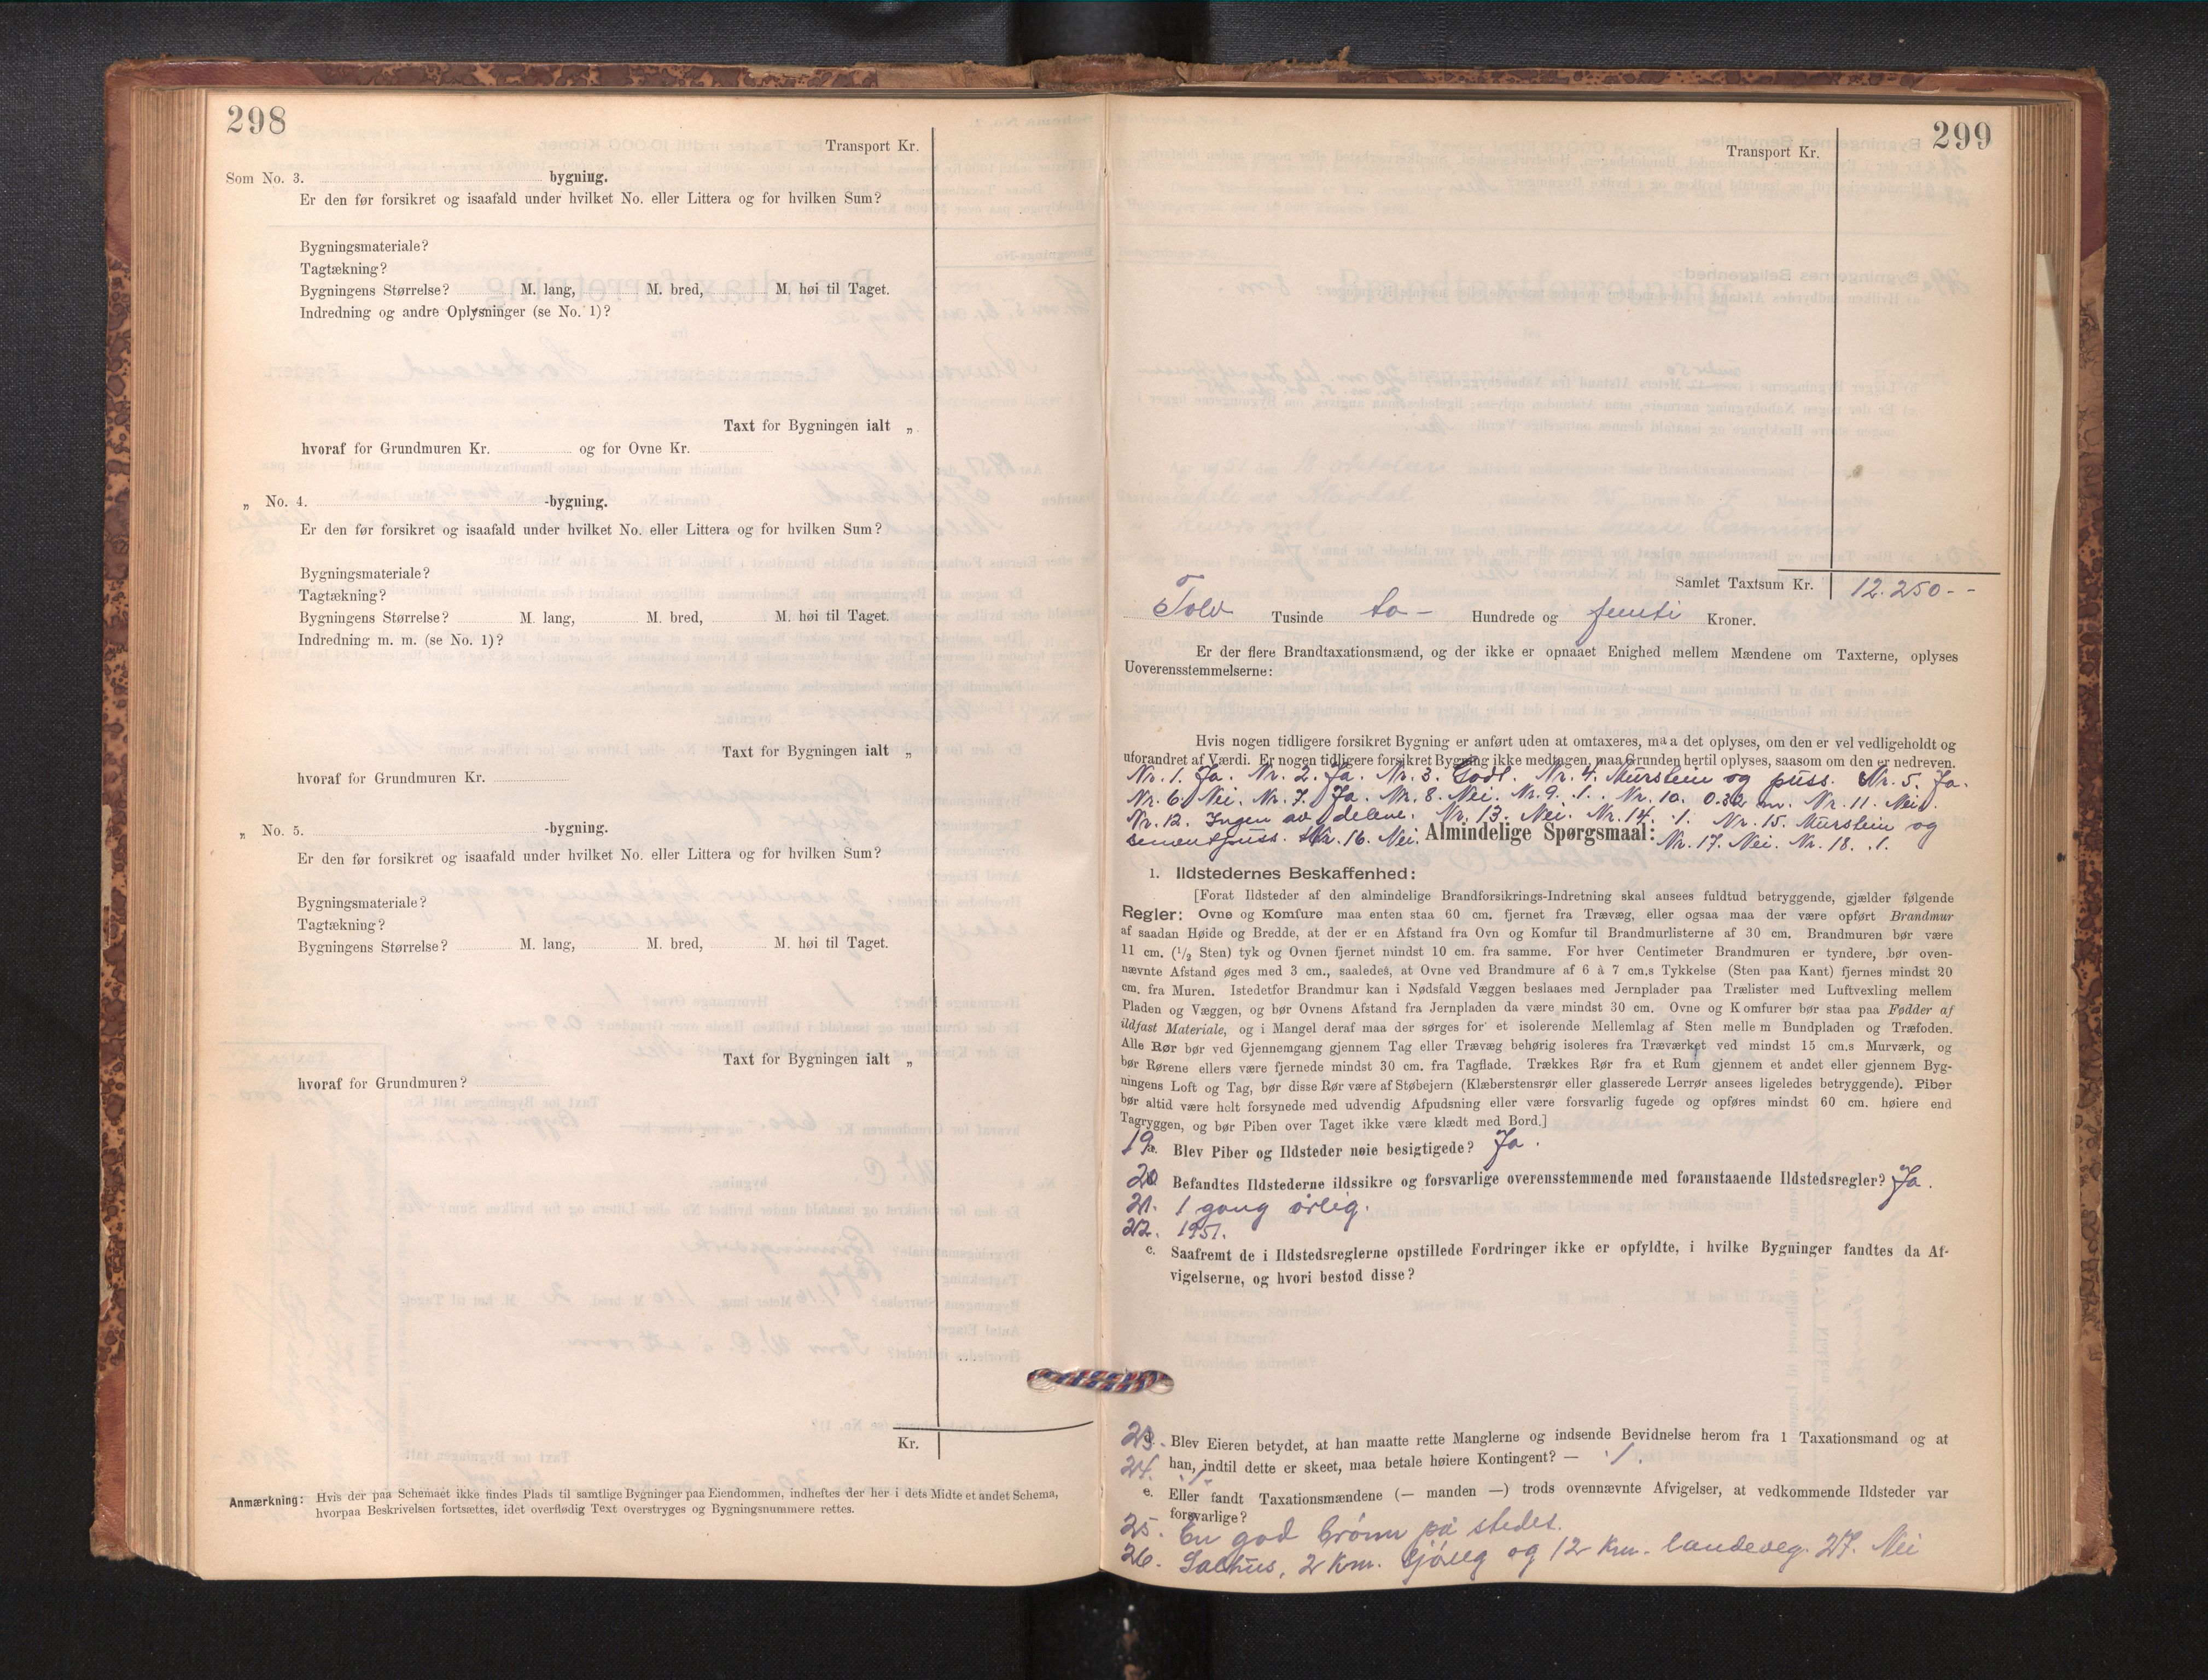 298
Transport Kr.
Som No. 3. bygning.
Er den før forsikret og isaafald under hvilket No. eller Littera og for hvilken Sum?
Bygningsmateriale?
Tagtækning?
Bygningens Størrelse? M. lang, M. bred, M. høi til Taget.
Indredning og andre Oplysninger (se No. 1)?
Taxt for Bygningen ialt „
hvoraf for Grundmuren Kr. og for Ovne Kr.
„ No. 4. -bygning.
Er den før forsikret og isaafald under hvilket No. eller Littera og for hvilken Sum?
Bygningsmateriale?
Tagtækning?
Bygningens Størrelse? M. lang, M. bred, M. høi til Taget.
Indredning m. m. (se No. 1)?
Taxt for Bygningen ialt „
hvoraf for Grundmuren Kr.
„ No. 5. -bygning.
Er den før forsikret og isaafald under hvilket No. eller Littera og for hvilken Sum?
Bygningsmateriale?
Tagtækning?
Bygningens Størrelse? M. lang, M. bred, M. høi til Taget.
Taxt for Bygningen ialt „
hvoraf for Grundmuren?
Kr.
Anmærkning: Hvis der paa Schemaet ikke findes Plads til samtlige Bygninger paa Eiendommen, indheftes der her i dets Midte et andet Schema,
hvorpaa Beskrivelsen fortsættes, idet overflødig Text overstryges og Bygningsnummere rettes.
299
Transport Kr.
Samlet Taxtsum Kr. 12.250--
Tolv Tusinde to- Hundrede og femti Kroner.
Er der flere Brandtaxationsmænd, og der ikke er opnaaet Enighed mellem Mændene om Taxterne, oplyses
Uoverensstemmelserne:
Hvis nogen tidligere forsikret Bygning er anført uden at omtaxeres, maa det oplyses, om den er vel vedligeholdt og
uforandret af Værdi. Er nogen tidligere forsikret Bygning ikke medtagen, maa Grunden hertil oplyses, saasom om den er nedreven.
Nr. 1. Ja. Nr. 2. Ja. Nr. 3. Godt. Nr. 4. Murstein og puss. Nr. 5. Ja.
Nr. 6. Nei. Nr. 7. Ja. Nr. 8. Nei. Nr. 9. ./. Nr. 10. 0.32 m. Nr. 11. Nei.
Nr. 12. Ingen av delene. Nr. 13. Nei. Nr. 14. ./. Nr. 15. Murstein og
sementpuss. Nr. 16. Nei. Almindelige Spørgsmaal: Nr. 17. Nei. Nr. 18. ./.
1. Ildstedernes Beskaffenhed:
[Forat Ildsteder af den almindelige Brandforsikrings-Indretning skal ansees fuldtud betryggende, gjælder følgende
Regler: Ovne og Komfure maa enten staa 60 cm. fjernet fra Trævæg, eller ogsaa maa der være opført Brandmur
af saadan Høide og Bredde, at der er en Afstand fra Ovn og Komfur til Brandmurlisterne af 30 cm. Brandmuren bør være
11 cm. (1/2 Sten) tyk og Ovnen fjernet mindst 10 cm. fra samme. For hver Centimeter Brandmuren er tyndere, bør oven-
nævnte Afstand øges med 3 cm., saaledes, at Ovne ved Brandmure af 6 à 7 cm.s Tykkelse (Sten paa Kant) fjernes mindst 20
cm. fra Muren. Istedetfor Brandmur kan i Nødsfald Væggen beslaaes med Jernplader paa Trælister med Luftvexling mellem
Pladen og Væggen, og bør Ovnens Afstand fra Jernpladen da være mindst 30 cm. Ovne og Komfurer bør staa paa Fødder af
ildfast Materiale, og i Mangel deraf maa der sørges for et isolerende Mellemlag af Sten mellem Bundpladen og Træfoden.
Alle Rør bør ved Gjennemgang gjennem Tag eller Trævæg behørig isoleres fra Træværket ved mindst 15 cm.s Murværk, og
bør Rørene ellers være fjernede mindst 30 cm. fra Tagflade. Trækkes Rør fra et Rum gjennem et andet eller gjennem Byg-
ningens Loft og Tag, bør disse Rør være af Støbejern (Klæberstensrør eller glasserede Lerrør ansees ligeledes betryggende). Piber
bør altid være helt forsynede med udvendig Afpudsning eller være forsvarlig fugede og opføres mindst 60 cm. høiere end
Tagryggen, og bør Piben over Taget ikke være klædt med Bord.]
19 a. Blev Piber og Ildsteder nøie besigtigede? Ja.
20 Befandtes Ildstederne ildssikre og forsvarlige overensstemmende med foranstaaende Ildstedsregler? Ja.
21. 1 gang årlig.
22. 1951.
c. Saafremt de i Ildstedsreglerne opstillede Fordringer ikke er opfyldte, i hvilke Bygninger fandtes da Af-
vigelserne, og hvori bestod disse?
23. Blev Eieren betydet, at han maatte rette Manglerne og indsende Bevidnelse herom fra 1 Taxationsmand og at
24. han, indtil dette er skeet, maa betale høiere Kontingent? — ./.
./.
e. Eller fandt Taxationsmændene (— manden —) trods ovennævnte Afvigelser, at vedkommende Ildsteder var
forsvarlige?
25. En god brönn på stedet.
26. Salhus, 2 km. sjöveg og 12 km. landeveg. 27. Nei